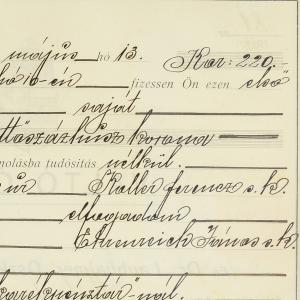 május hó 13. Kor: 220.-
hó 10-én fizessen Ön ezen első
saját
ttőszázhúsz korona
molásba tudósítás nélkül.
úr Koller Ferencz s.k.
elfogadom
Ehrenreich János s.k.
karékpénztár"-nál.